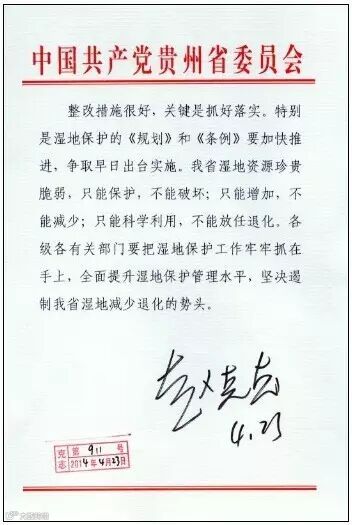 中国共产党贵州省委员会
整改措施很好，关键是抓好落实。特别
是湿地保护的《规划》和《条例》要加快推
进，争取早日出台实施。我省湿地资源珍贵
脆弱，只能保护，不能破坏；只能增加，不
能减少；只能科学利用，不能放任退化。各
级各有关部门要把湿地保护工作牢牢抓在
手上，全面提升湿地保护管理水平，坚决遏
制我省湿地减少退化的势头。
赵克志
4.23
克志
第911号
2014年4月23日